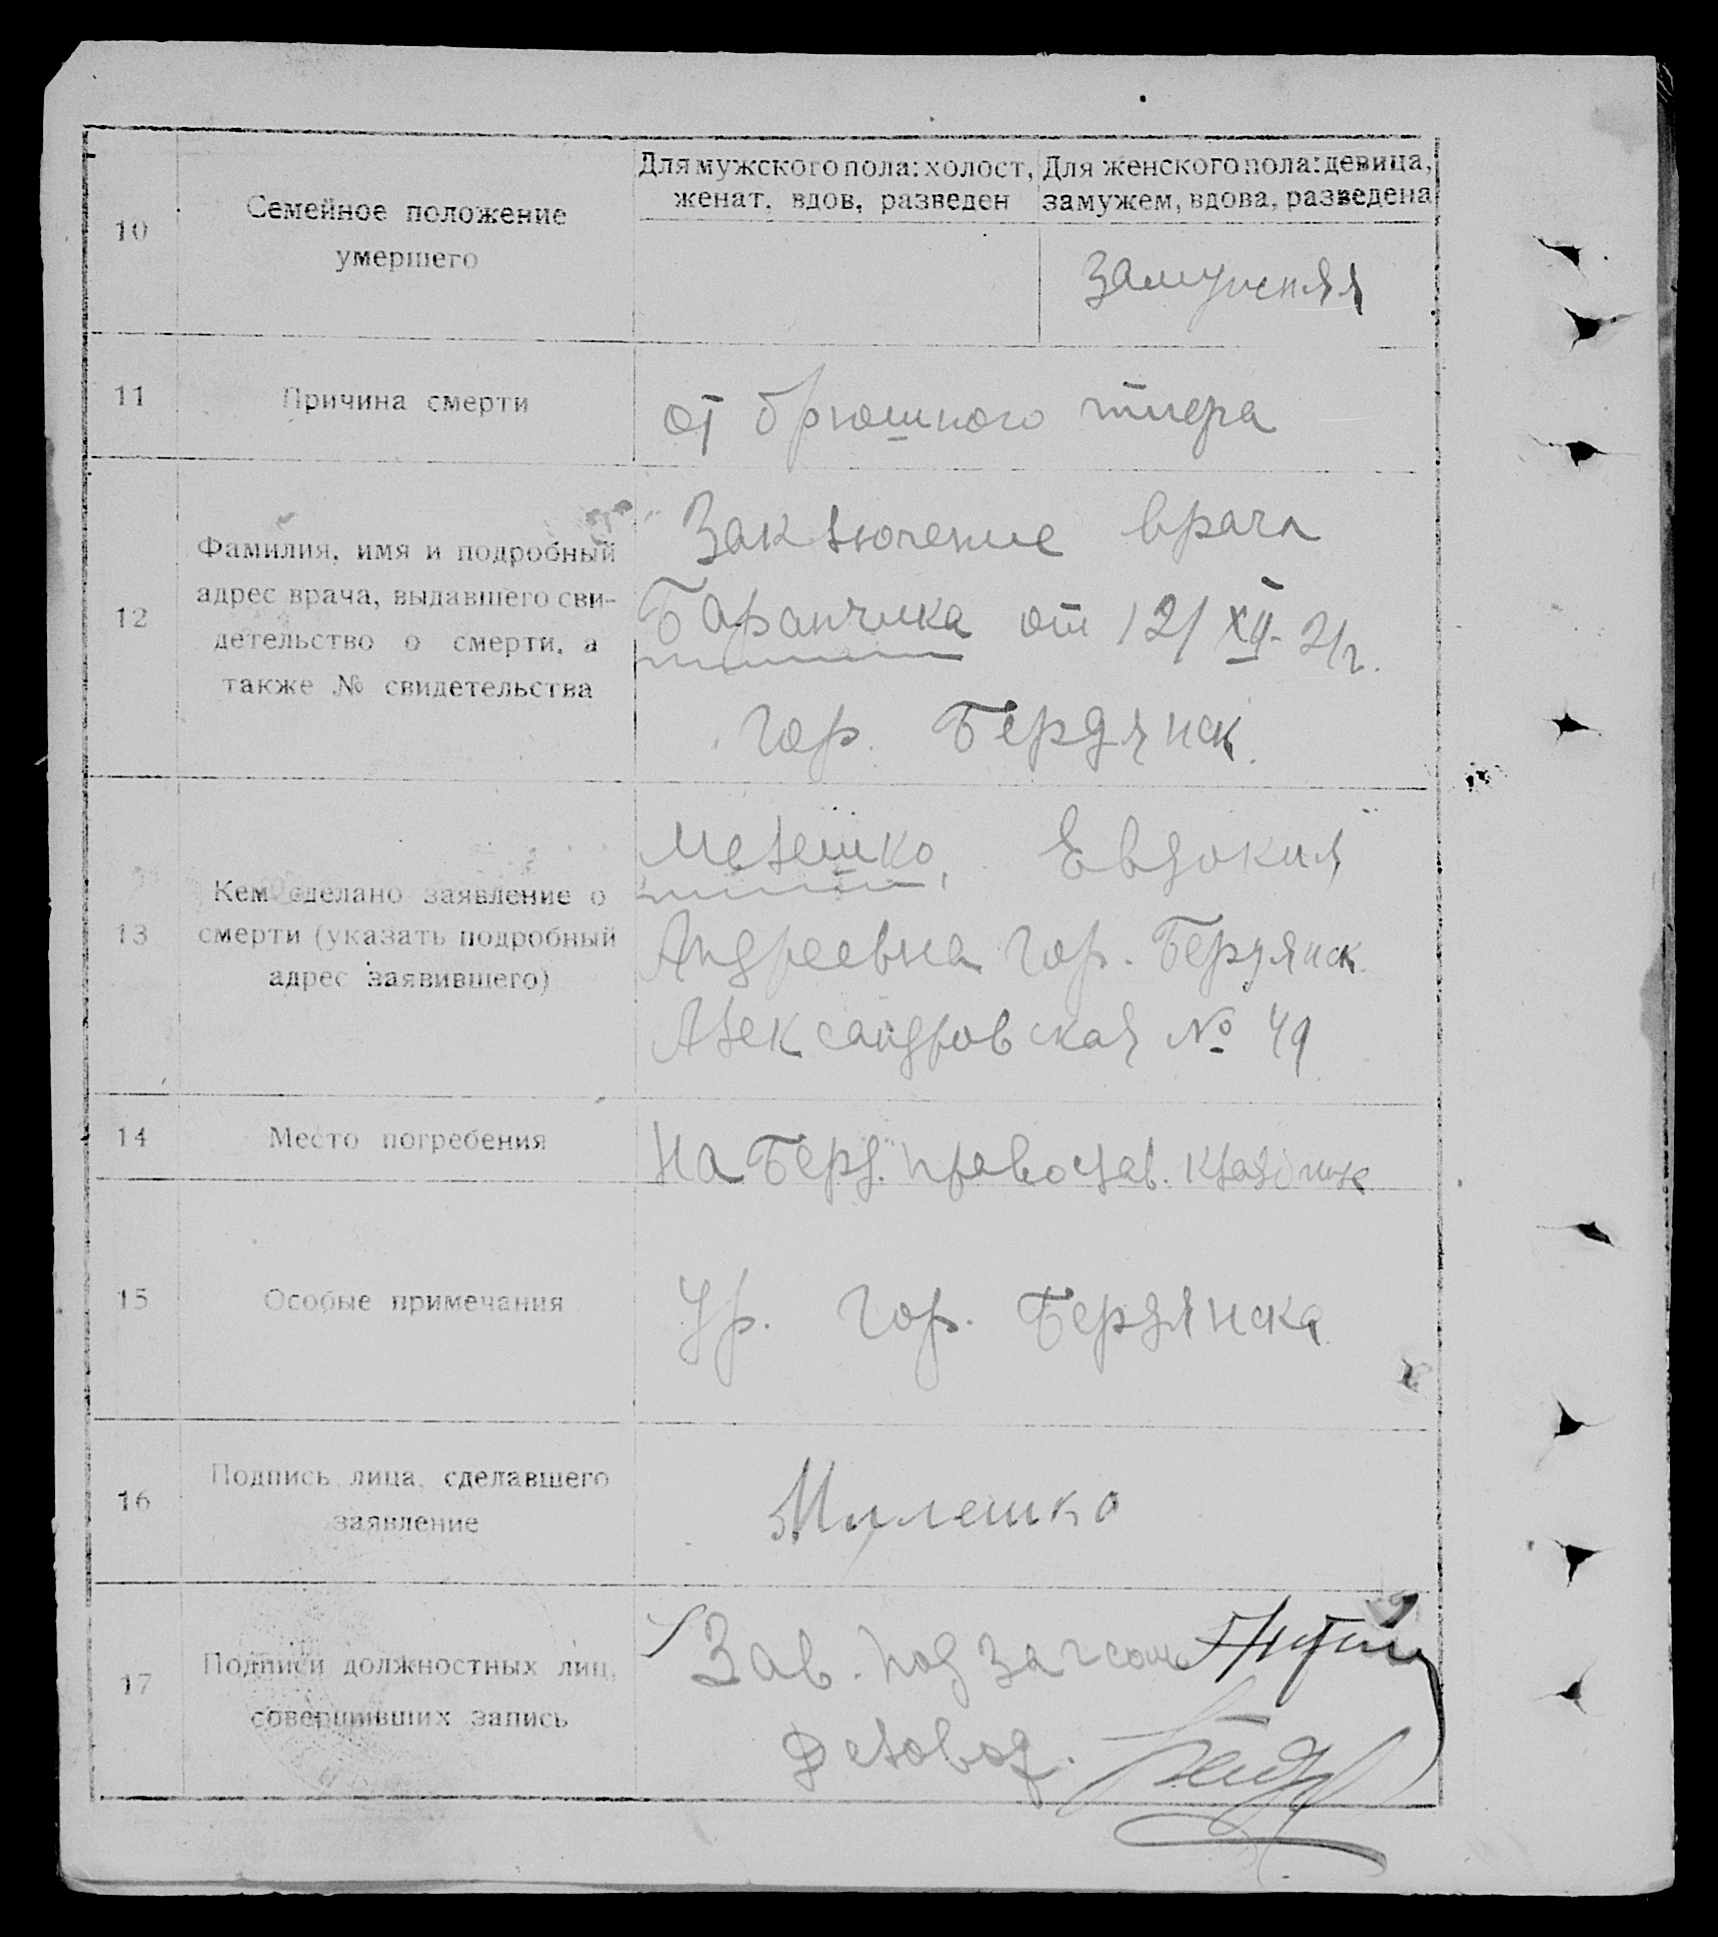 10
Семейное положение
умершего
Для мужского пола: холост,
женат, вдов, разведен
Для женского пола: девица,
замужем, вдова, разведена
Замужняя
11
Причина смерти
от брюшного тифа
12
Фамилия, имя и подробный
адрес врача, выдавшего сви-
детельство о смерти, а
также № свидетельства
Заключение врача
Баранчика от 12/XII-21г.
гор. Бердянск.
13
Кем сделано заявление о
смерти (указать подробный
адрес заявившего)
Мелешко, Евдокия
Андреевна гор. Бердянск
Александровская № 49
14
Место погребения
На Берд. православ. кладбище
15
Особые примечания
Ур. гор. Бердянска
16
Подпись лица, сделавшего
заявление
Милешко
17
Подписи должностных лиц,
совершивших запись
Зав. подзагсом
Деловод.